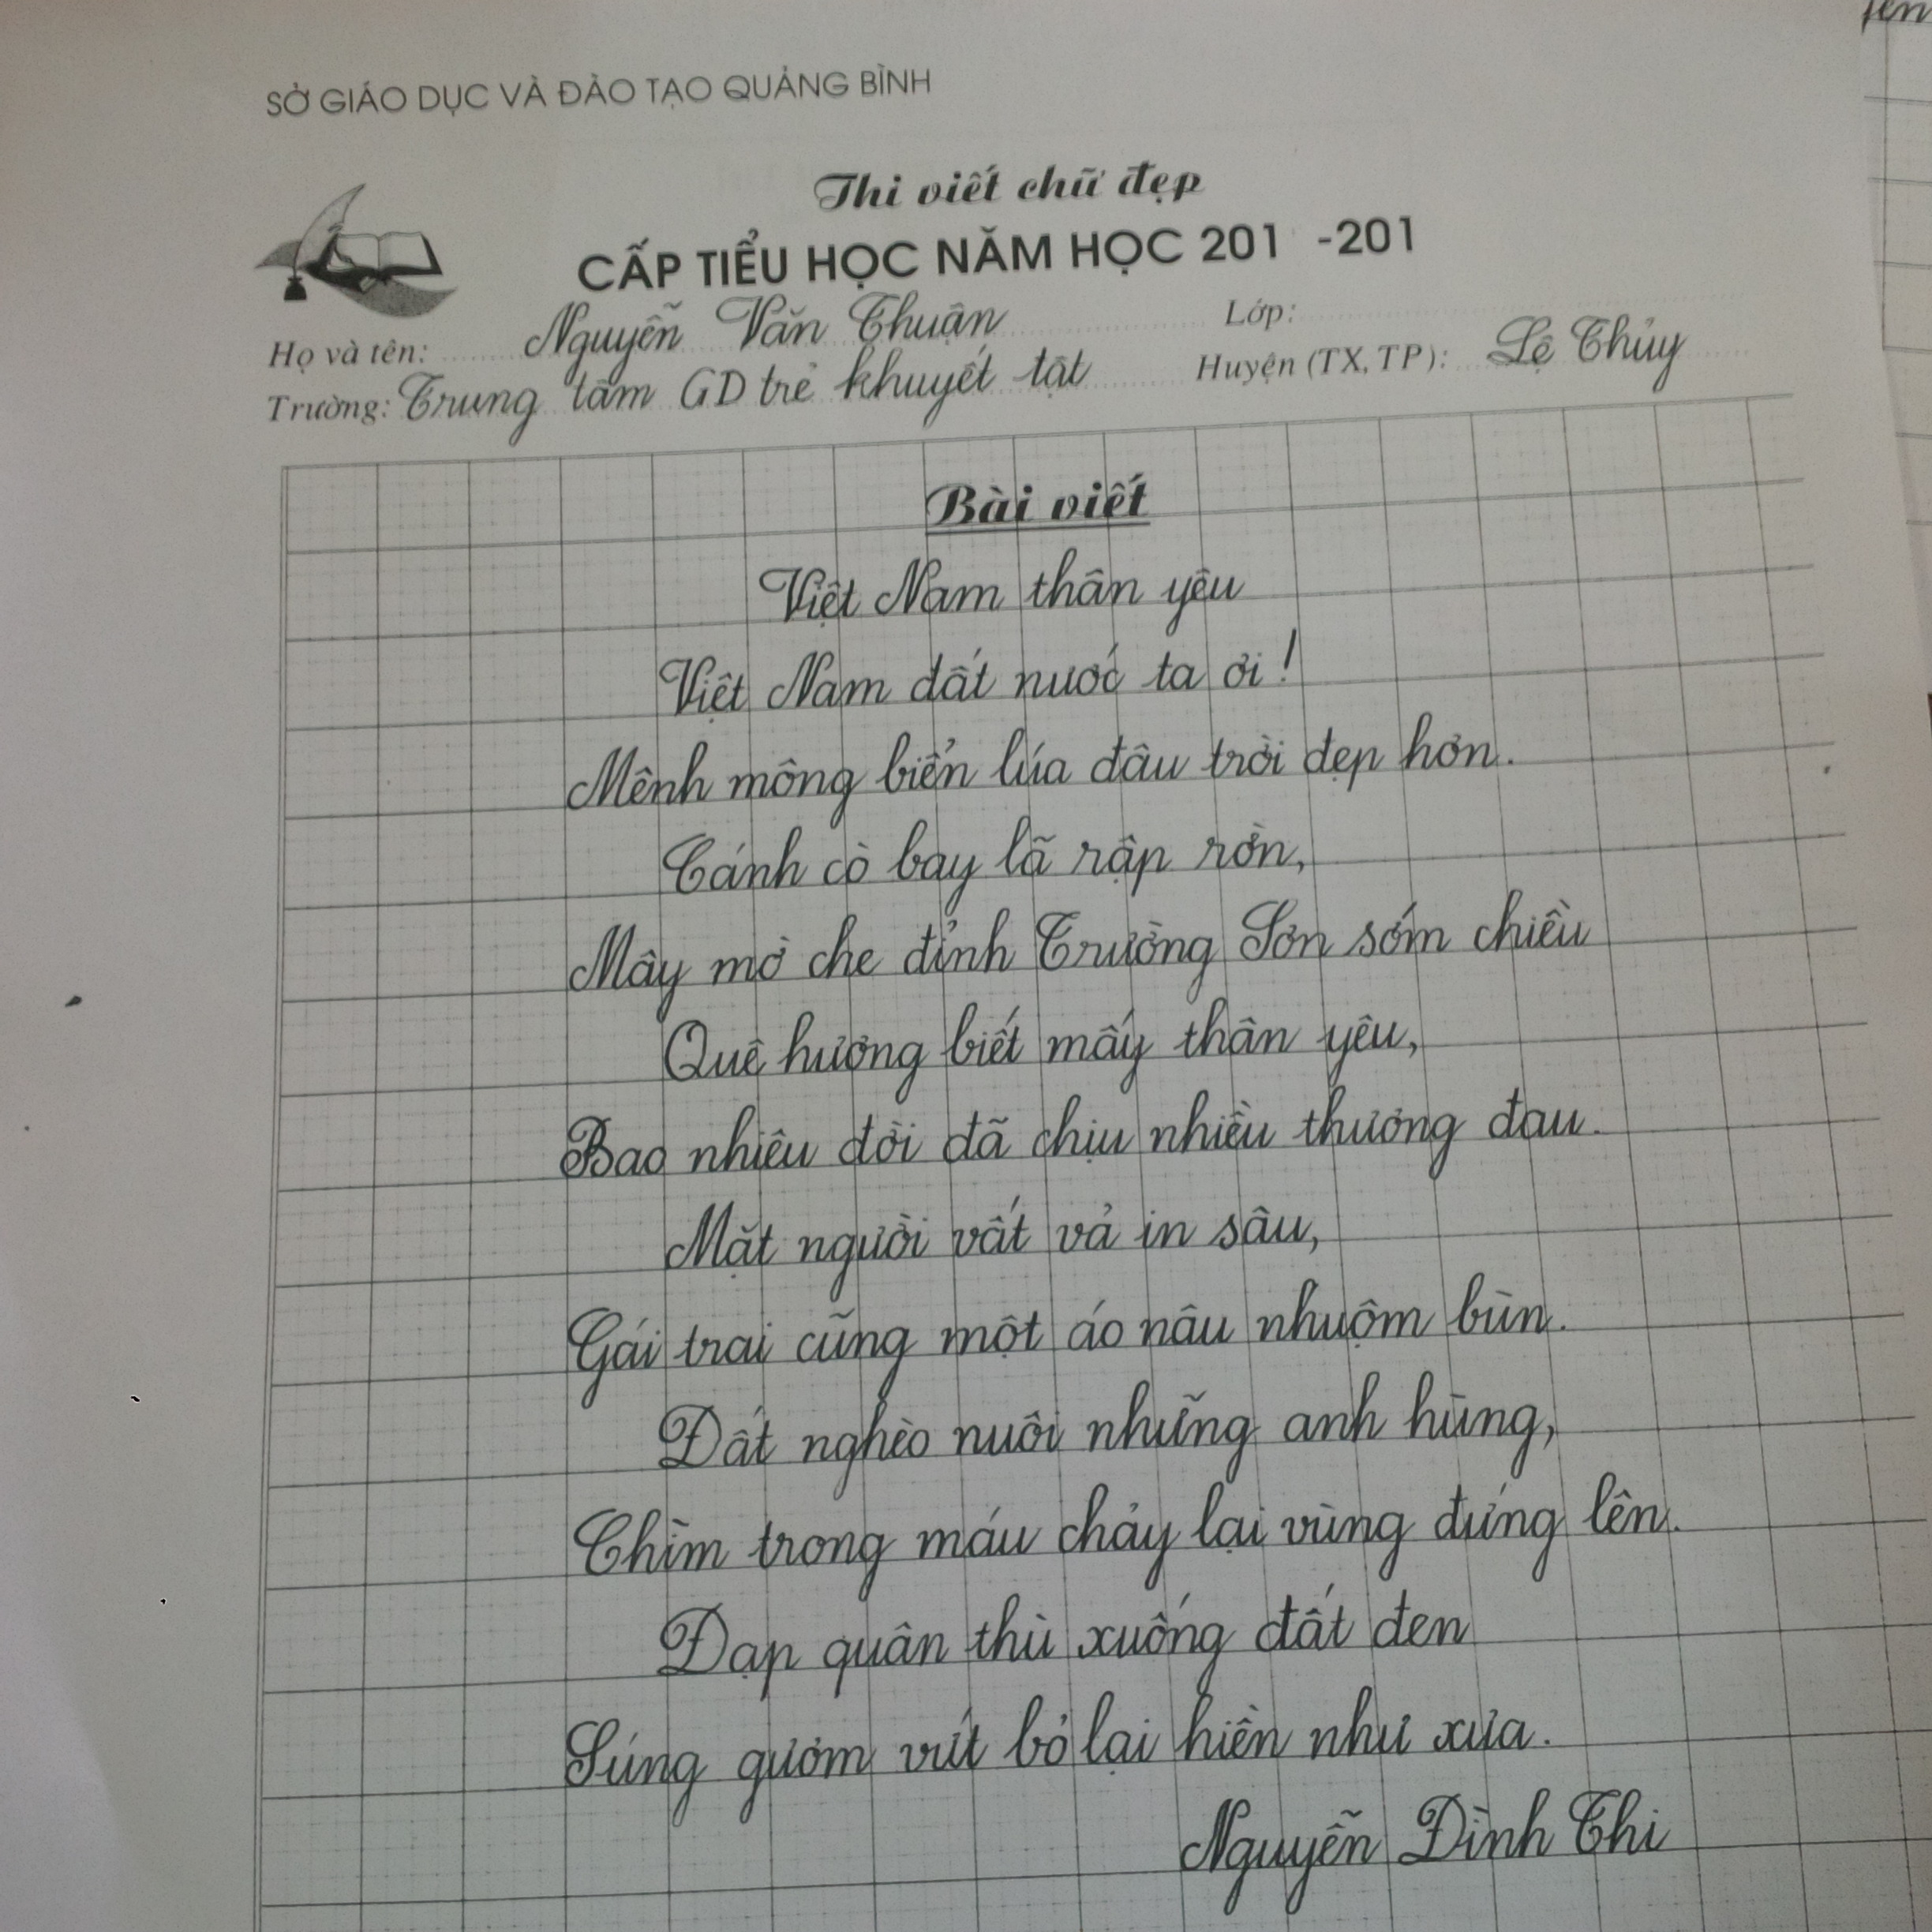 SỞ GIÁO DỤC VÀ ĐÀO TẠO QUẢNG BÌNH
Thi viết chữ đẹp
CẤP TIỂU HỌC NĂM HỌC 201 -201
Họ và tên: Nguyễn Văn Thuận Lớp:
Trường: Trung tâm GD trẻ khuyết tật Huyện (TX, TP): Lệ Thủy
Bài viết
Việt Nam thân yêu
Việt Nam đất nước ta ơi!
Mênh mông biển lúa đâu trời đẹp hơn.
Cánh cò bay lã rập rờn,
Mây mờ che đỉnh Trường Sơn sớm chiều
Quê hương biết mấy thân yêu,
Bao nhiêu đời đã chịu nhiều thương đau.
Mặt người vất vả in sâu,
Gái trai cũng một áo nâu nhuộm bùn.
Đất nghèo nuôi những anh hùng,
Chìm trong máu chảy lại vùng đứng lên.
Đạp quân thù xuống đất đen
Súng gươm vứt bỏ lại hiền như xưa.
Nguyễn Đình Thi